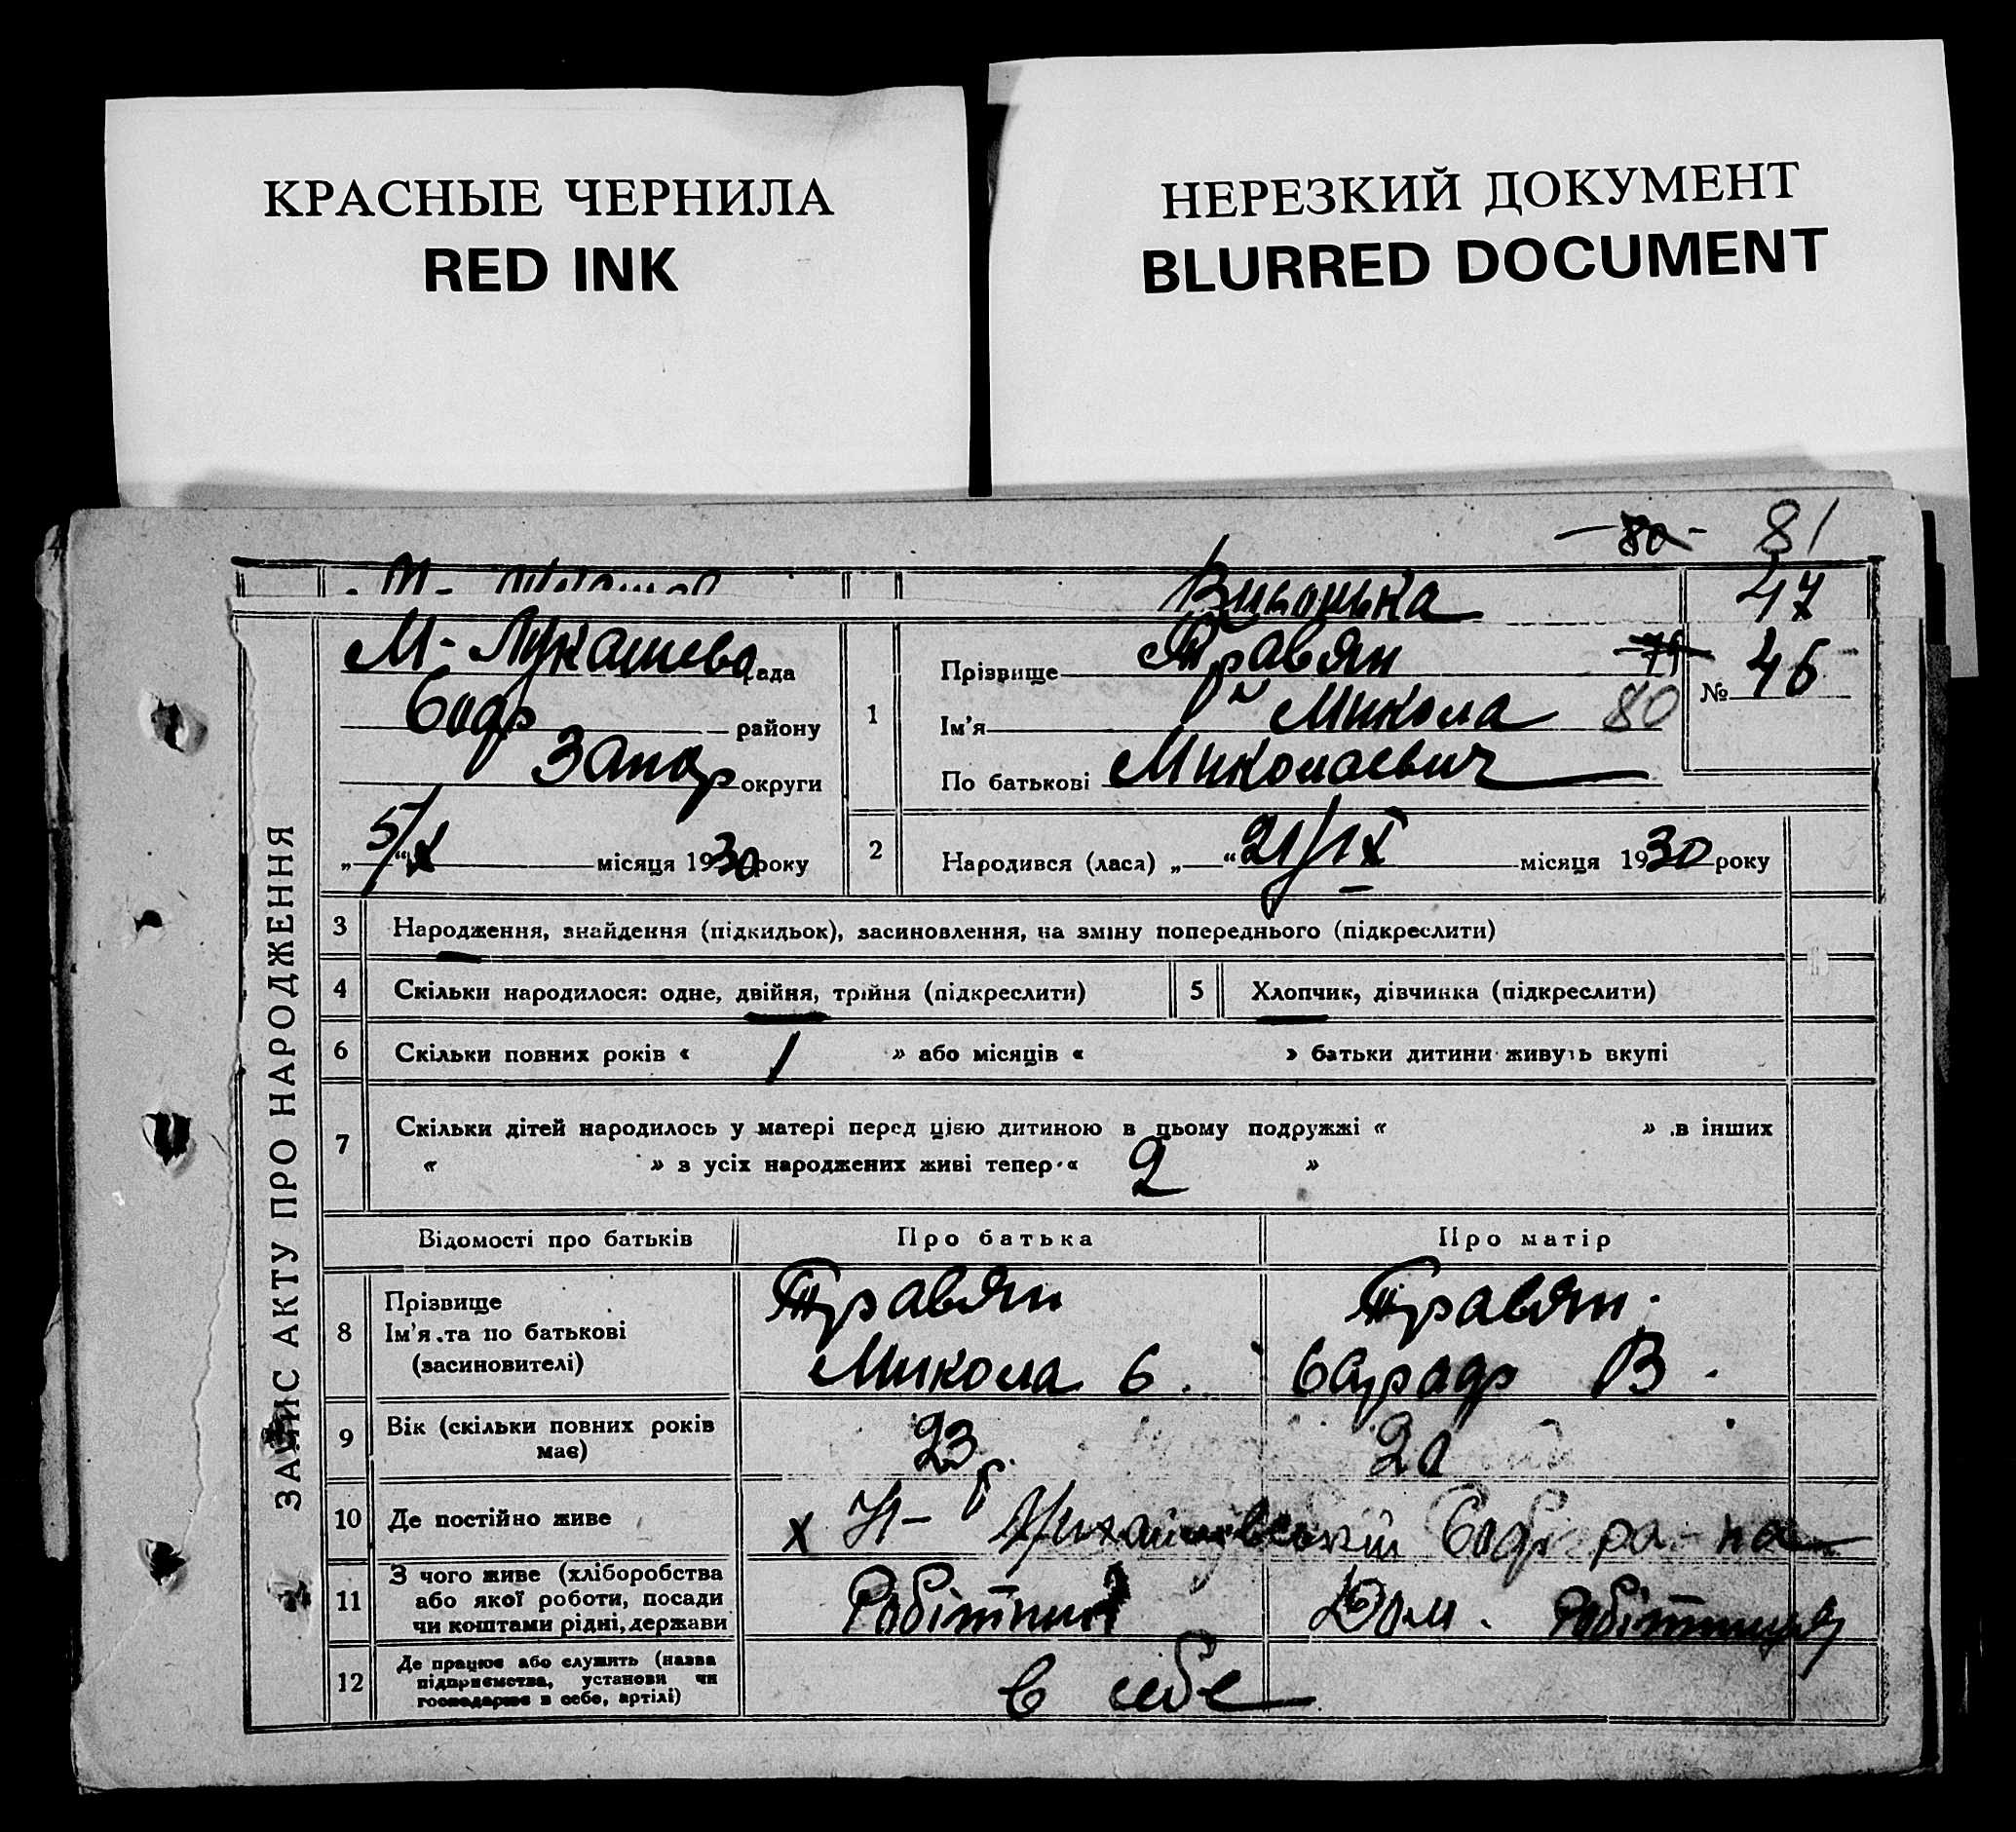 КРАСНЫЕ ЧЕРНИЛА
RED INK
НЕРЕЗКИЙ ДОКУМЕНТ
BLURRED DOCUMENT
80 81
47
ЗАПИС АКТУ ПРО НАРОДЖЕННЯ
М-Лукашева рада
Софр району
Запор округи
„5/X“ місяця 1930 року
1
Прізвище Травян 79
Ім'я Микола 80
По батькові Миколаевич
№ 46
2 Народився (лася) „ “ 21/IX місяця 1930 року
3 Народження, знайдення (підкидьок), засиновлення, на зміну попереднього (підкреслити)
4 Скільки народилося: одне, двійня, трійня (підкреслити) 5 Хлопчик, дівчинка (підкреслити)
6 Скільки повних років « 1 » або місяців « » батьки дитини живуть вкупі
7 Скільки дітей народилось у матері перед цією дитиною в цьому подружжі « » в інших
« » з усіх народжених живі тепер « 2 »
Відомості про батьків Про батька Про матір
8 Прізвище Травян Травян
Ім'я та по батькові
(засиновителі) Микола В.
9 Вік (скільки повних років має) 23 р.
10 Де постійно живе х Н- Михайлівський Софі ра-на
11 З чого живе (хліборобства
або якої роботи, посади Робітник Дом. робітниця
чи коштами рідні, держави
12 Де працює або служить (назва
підприємства, установи чи в себе
господарює в себе, артілі)